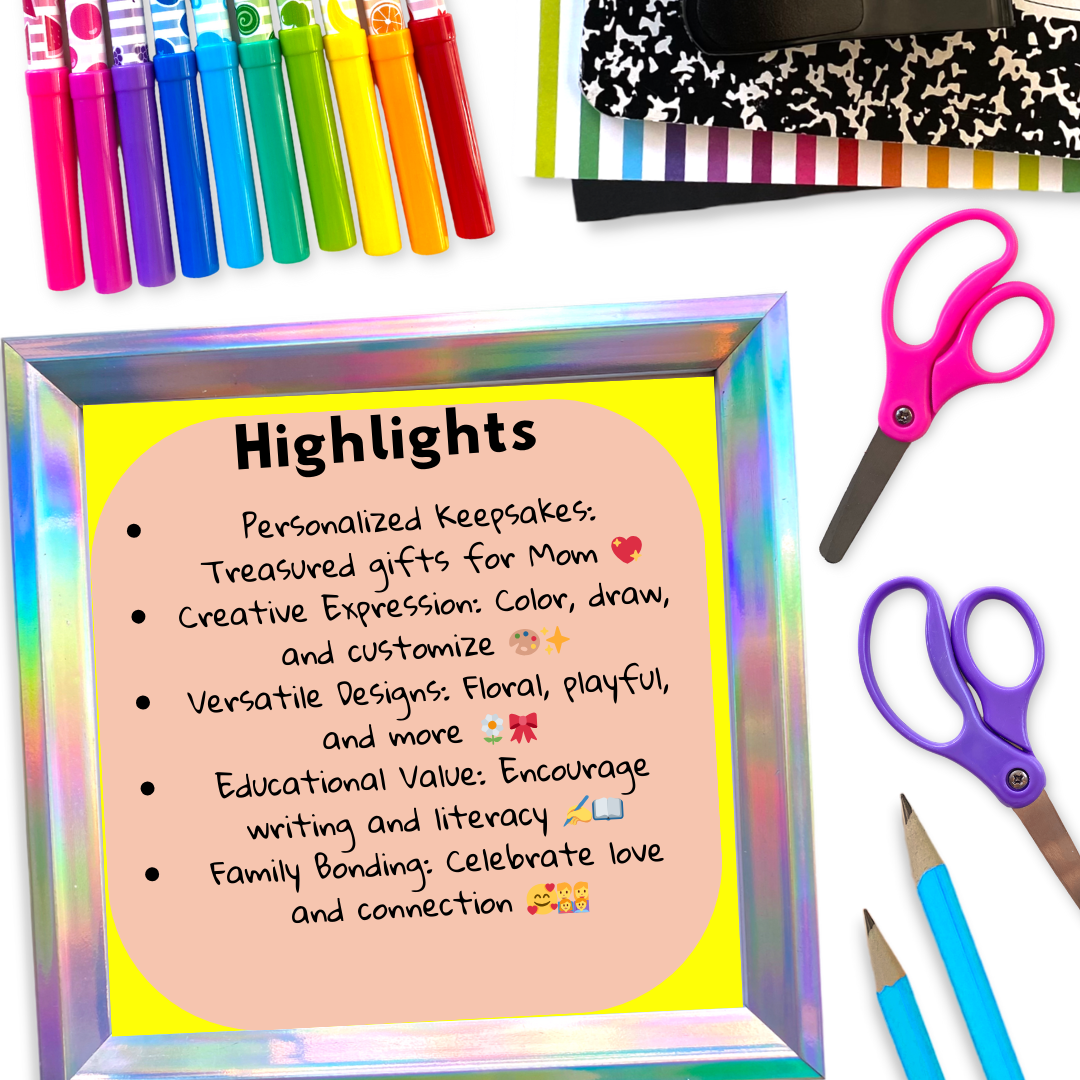 Highlights
• Personalized Keepsakes:
Treasured gifts for Mom 💖
• Creative Expression: Color, draw,
and customize 🎨✨
• Versatile Designs: Floral, playful,
and more 🌼🎀
• Educational Value: Encourage
writing and literacy ✍️📖
• Family Bonding: Celebrate love
and connection 🥰👨‍👩‍👧‍👦